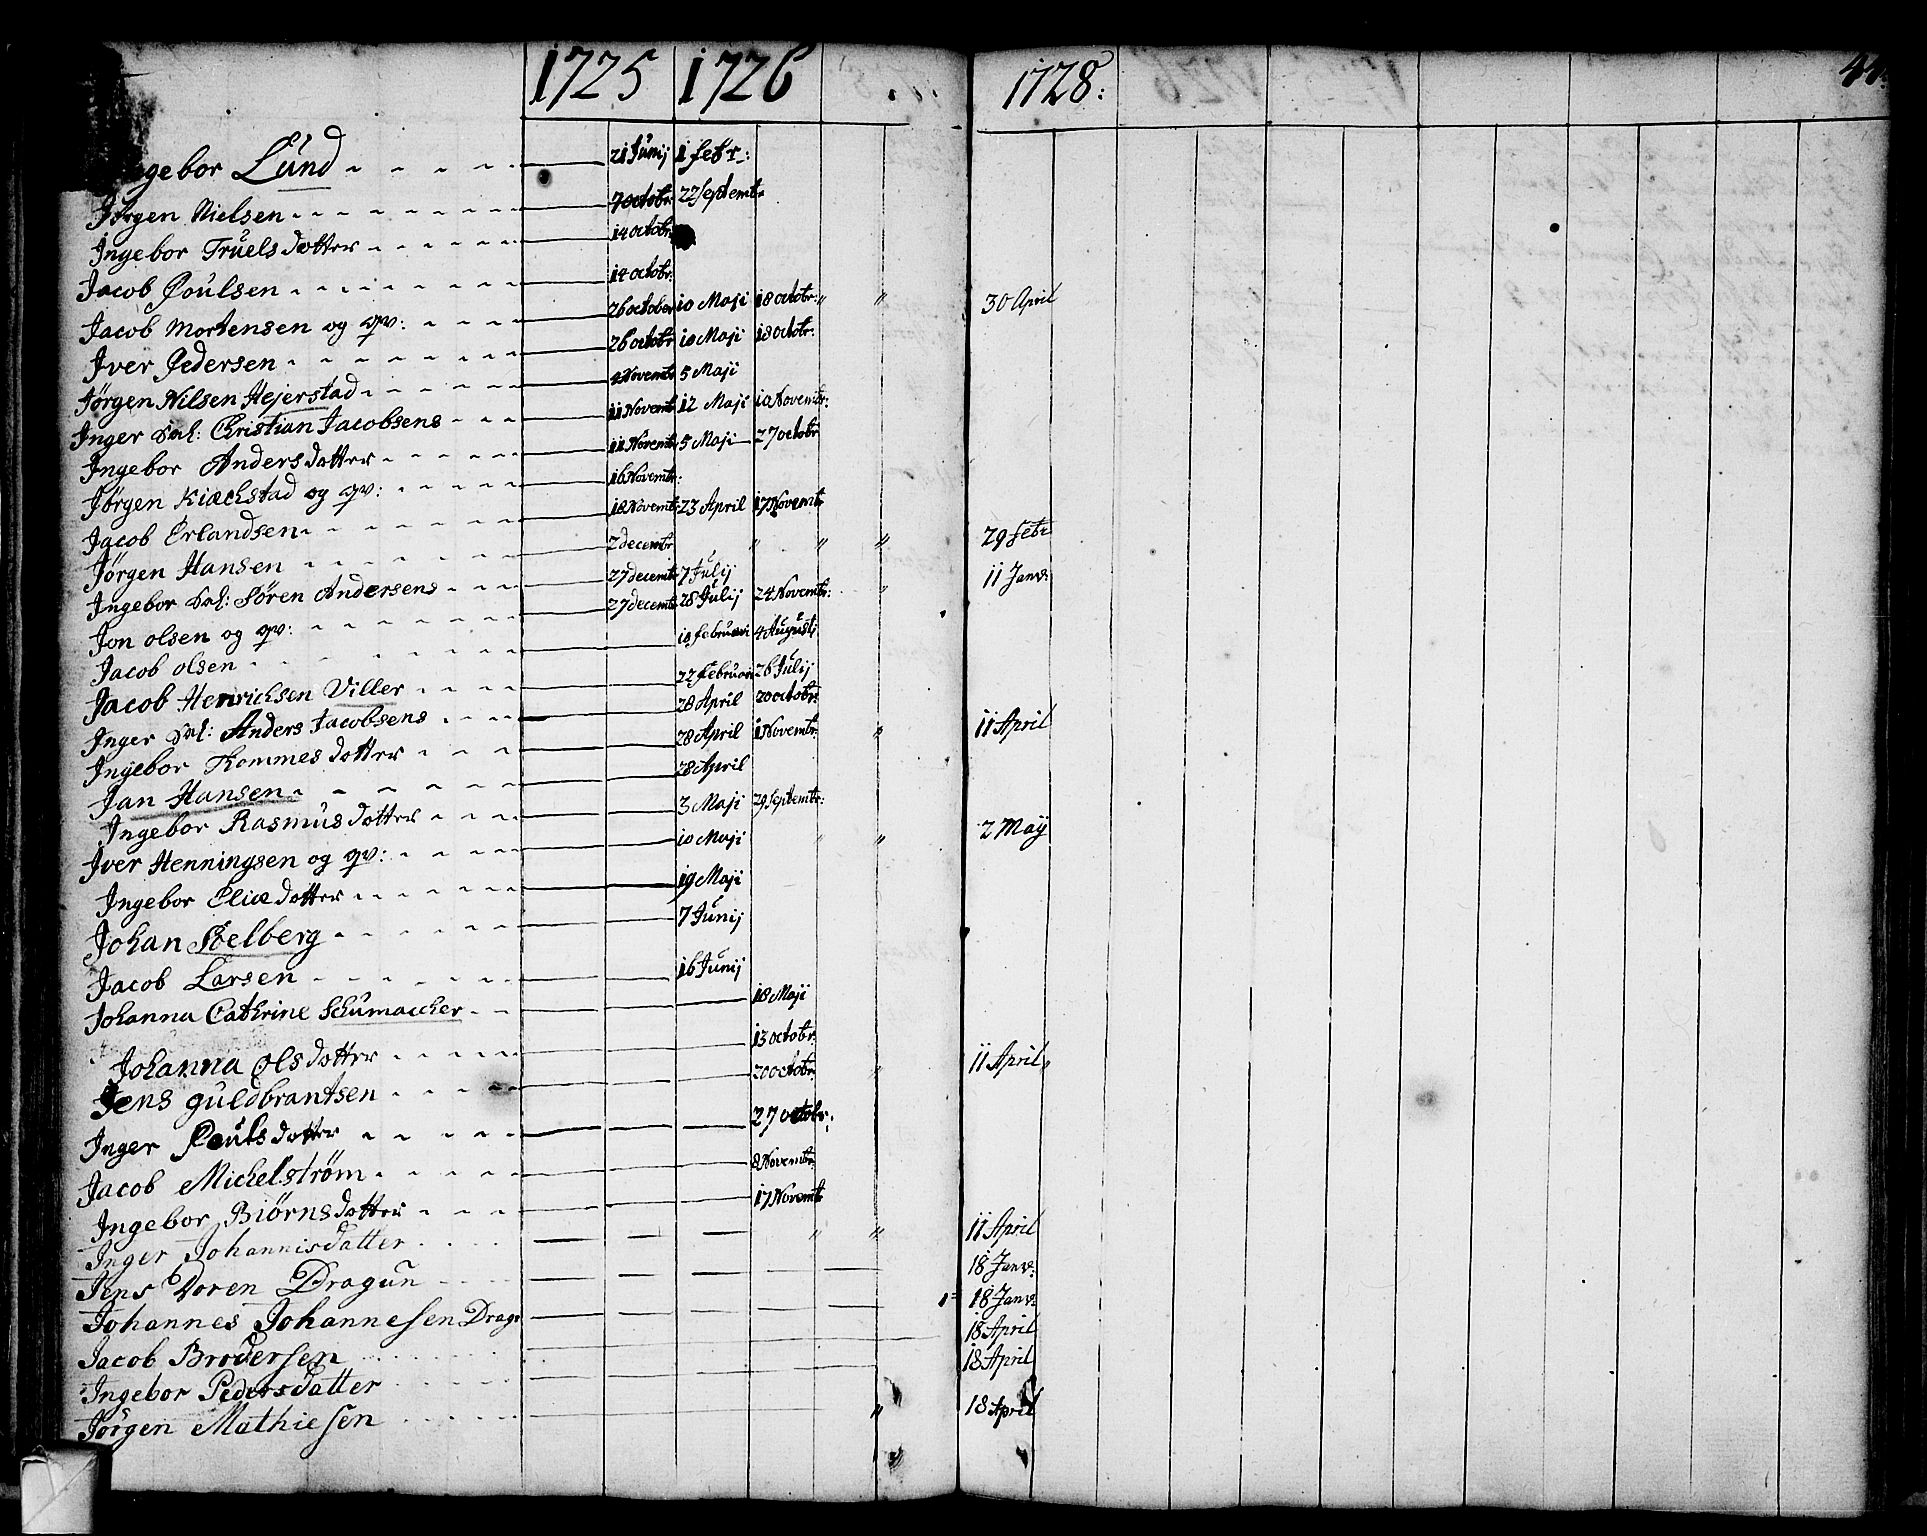 1725 1726 1728: 44
Ingebor Lund 21 Junij 1 febr:
Jørgen Nielsen 7 octobr: 22 Septembr
Ingebor Truels dotter 14 octobr:
Jacob Poulsen 14 octobr:
Jacob Mortensen og qv: 26 october 10 Maji 18 octobr: " " 30 April
Iver Pedersen 26 octobr 10 Maji 18 octobr:
Jørgen Nilsen Hejerstad Novembr 5 Maji
Inger Sal: Christian Jacobsens 11 Novembr 12 Maji 10 Novembr:
Ingebor Anders dotter 11 Novembr 5 Maji 27 octobr
Jørgen Kiæchstad og qv: 16 Novembr:
Jacob Erlandsen 18 Novembr: 23 April 17 Novembr
Jørgen Hansen 2 decembr " " " 29 febr
Ingebor Sal: Søren Andersens 27 decembr 7 Julij " 11 Janv:
Jon olsen og qv: 27 decembr 28 Julij 24 Novembr:
Jacob olsen 10 februari 4 Augusti
Jacob Henrichsen Viller 22 februari 26 Julij
Inger Sal: Anders Jacobsens 28 April 20 octobr:
Ingebor Thommes dotter 28 April 1 Novembr: " 11 April
Jan Hansen 28 April
Ingebor Rasmus dotter 3 Maji 29 Septembr:
Iver Henningsen og qv: 10 Maji " " 2 Maij
Ingebor Eliæ dotter 19 Maji
Johan Stelberg 7 Junij
Jacob Larsen 16 Junij
Johanna Cathrine Schumaccher 18 Maji
Johanna ols dotter 13 octobr:
Jens guldbrantsen 20 octobr: " 11 April
Inger Pouls dotter 27 octobr:
Jacob Michelström 8 Novembr:
Ingebor Biörns dotter 17 Novembr
Inger Johannisdatter " " 11 April
Jens Doren Dragun 18 Janv:
Johannes Johannesen Drag 18 Janv:
Jacob Brodersen 18 April
Ingebor Pedersdatter 18 April
Jørgen Mathiesen " 18 April